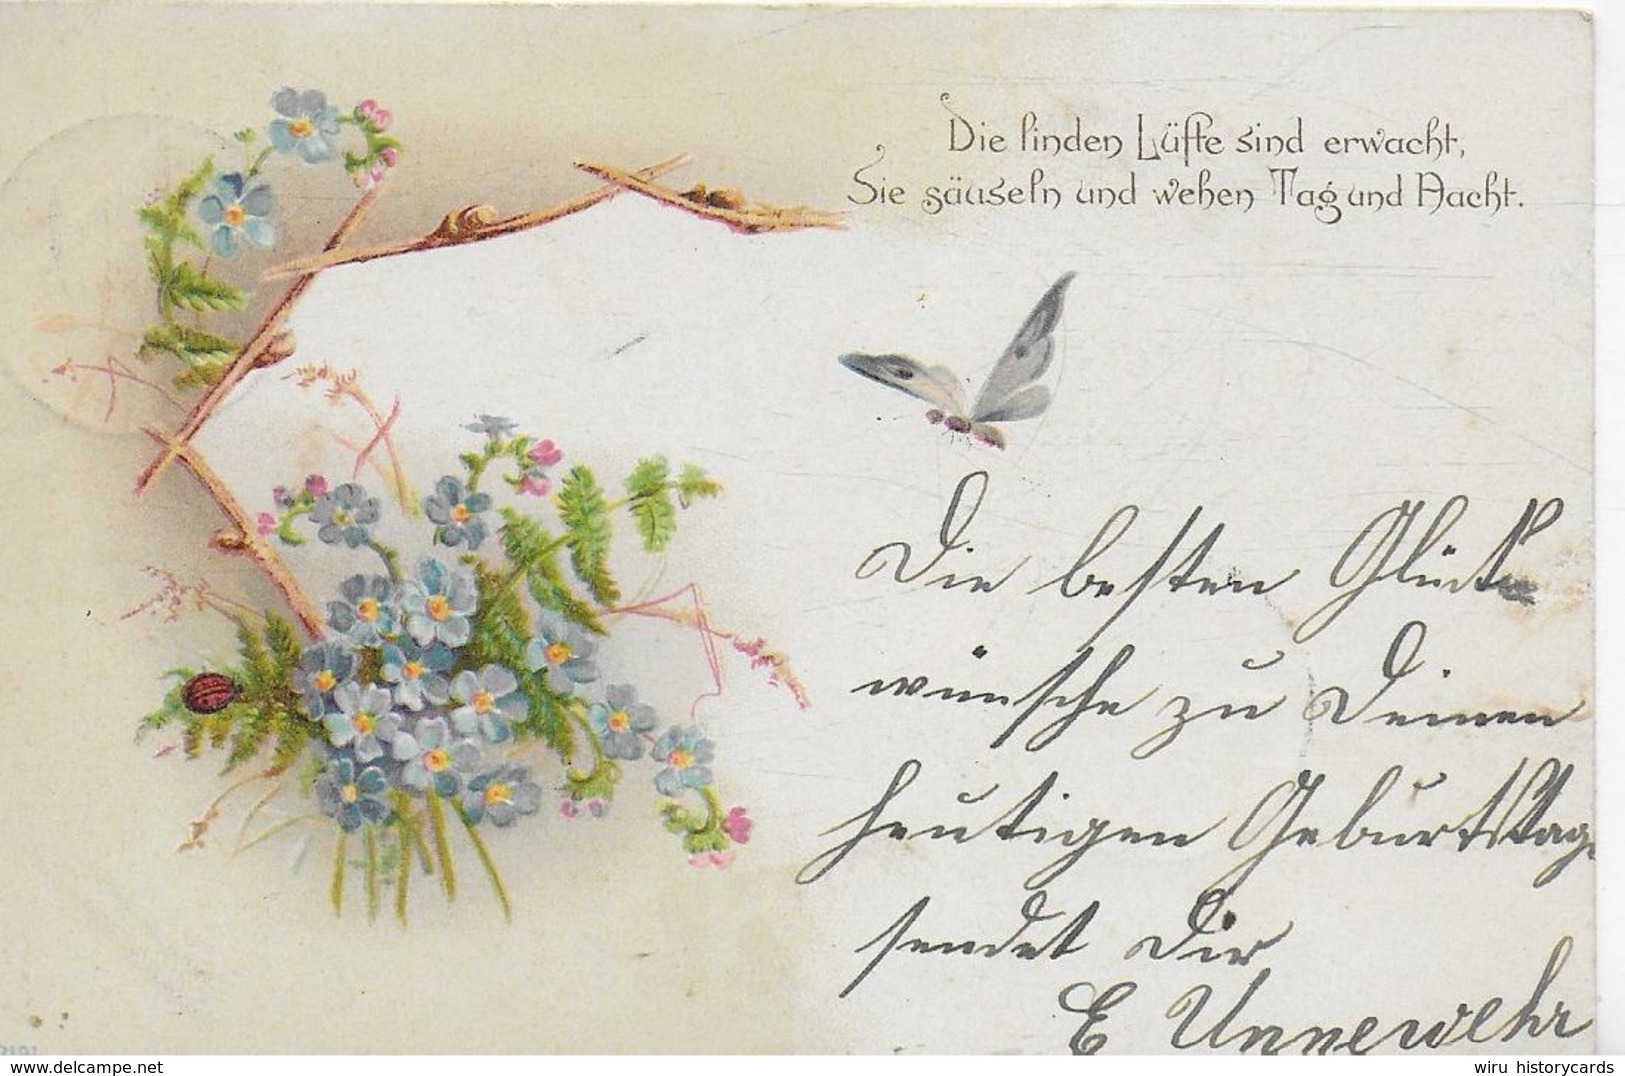 Die linden Lüfte sind erwacht,
Sie säuseln und wehen Tag und Nacht.
Die besten Glück
wünsche zu Deinen
heutigen Geburtstage
sendet Dir
E Unnewehr
wiru historycards